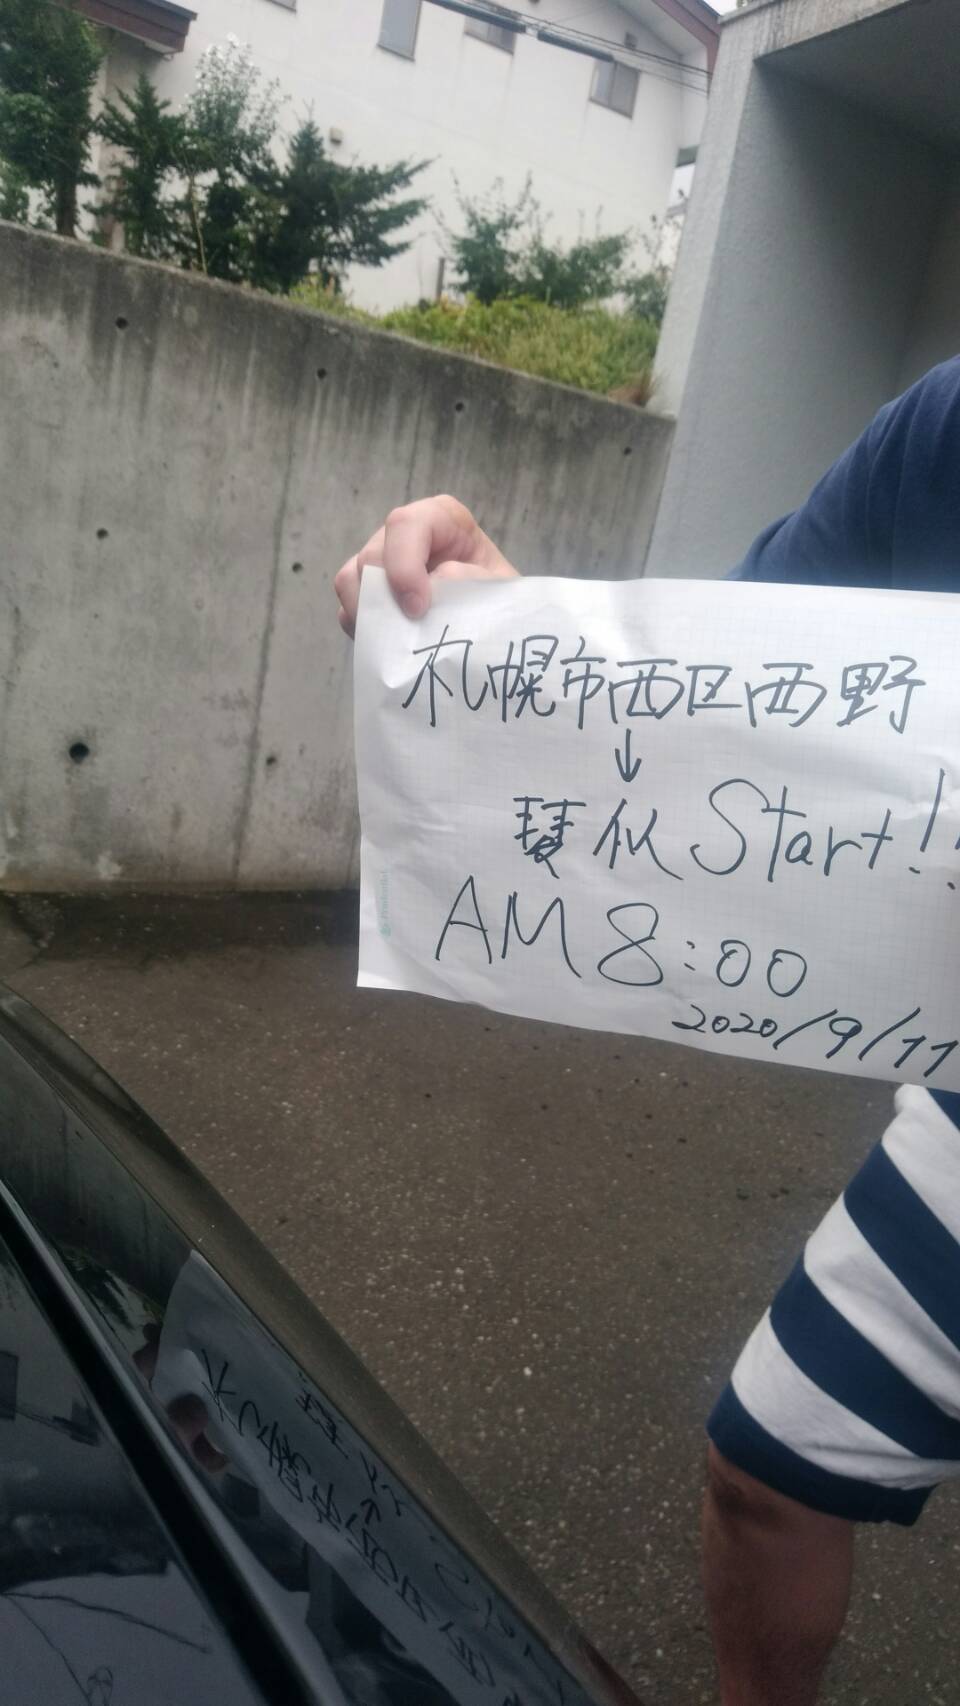 札幌市西区西野
↓
琴似 Start!!
AM 8:00
2020/9/11